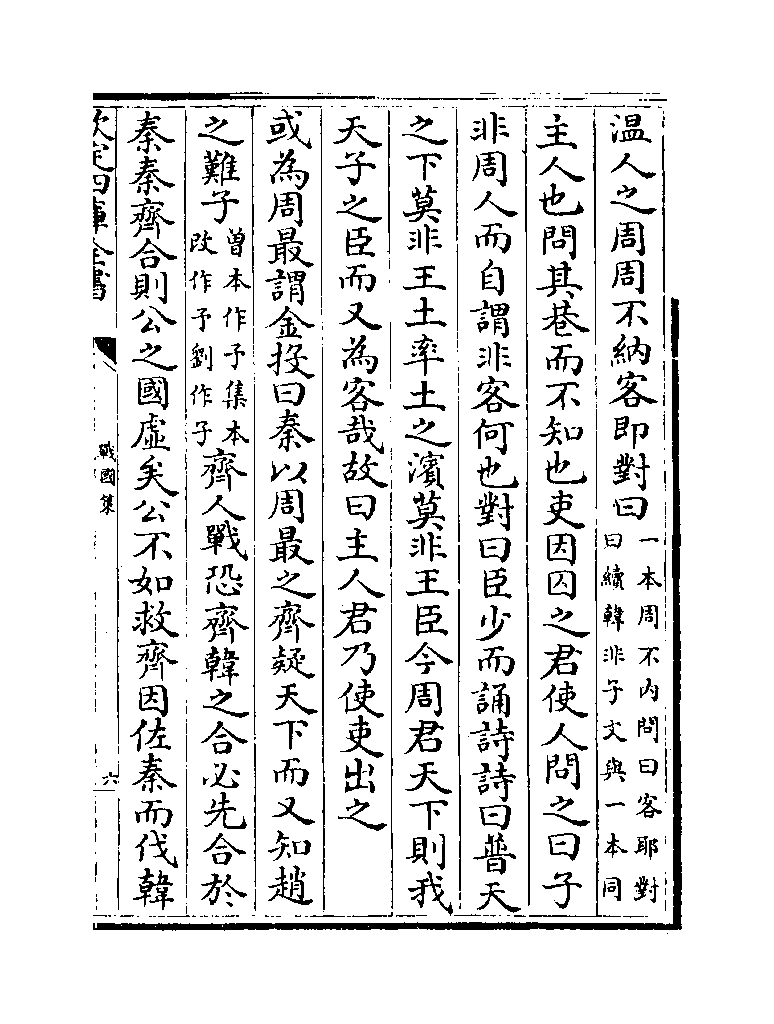 温人之周周不納客即對曰一本周不内問曰客耶對曰續韓非子文與一本同
主人也問其巷而不知也吏因囚之君使人問之曰子
非周人而自謂非客何也對曰臣少而誦詩詩曰普天
之下莫非王土率土之濱莫非王臣今周君天下則我
天子之臣而又為客哉故曰主人君乃使吏出之
或為周最謂金投曰秦以周最之齊疑天下而又知趙
之難子曾本作子集本改作予劉作子齊人戰恐齊韓之合必先合於
秦秦齊合則公之國虛矣公不如救齊因佐秦而伐韓
欽定四庫全書
戰國策
六